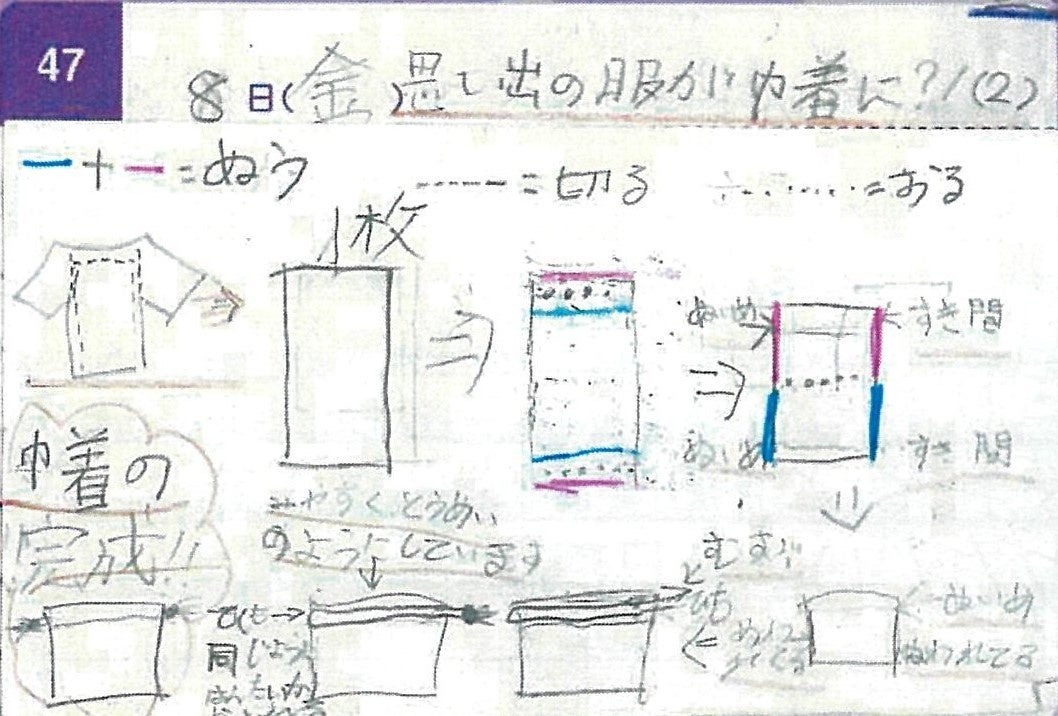 47
8日(金)思い出の服が巾着に?!(2)
ー+ー=ぬう
-----=切る
.......=おる
1枚
ぬいめ
すき間
ぬいめ
すき間
巾着の
完成!!
みやすくとうめい
のようにしています
むすぶ
ひも
ぬいめ
ぬわれてる
ひも→
同じように